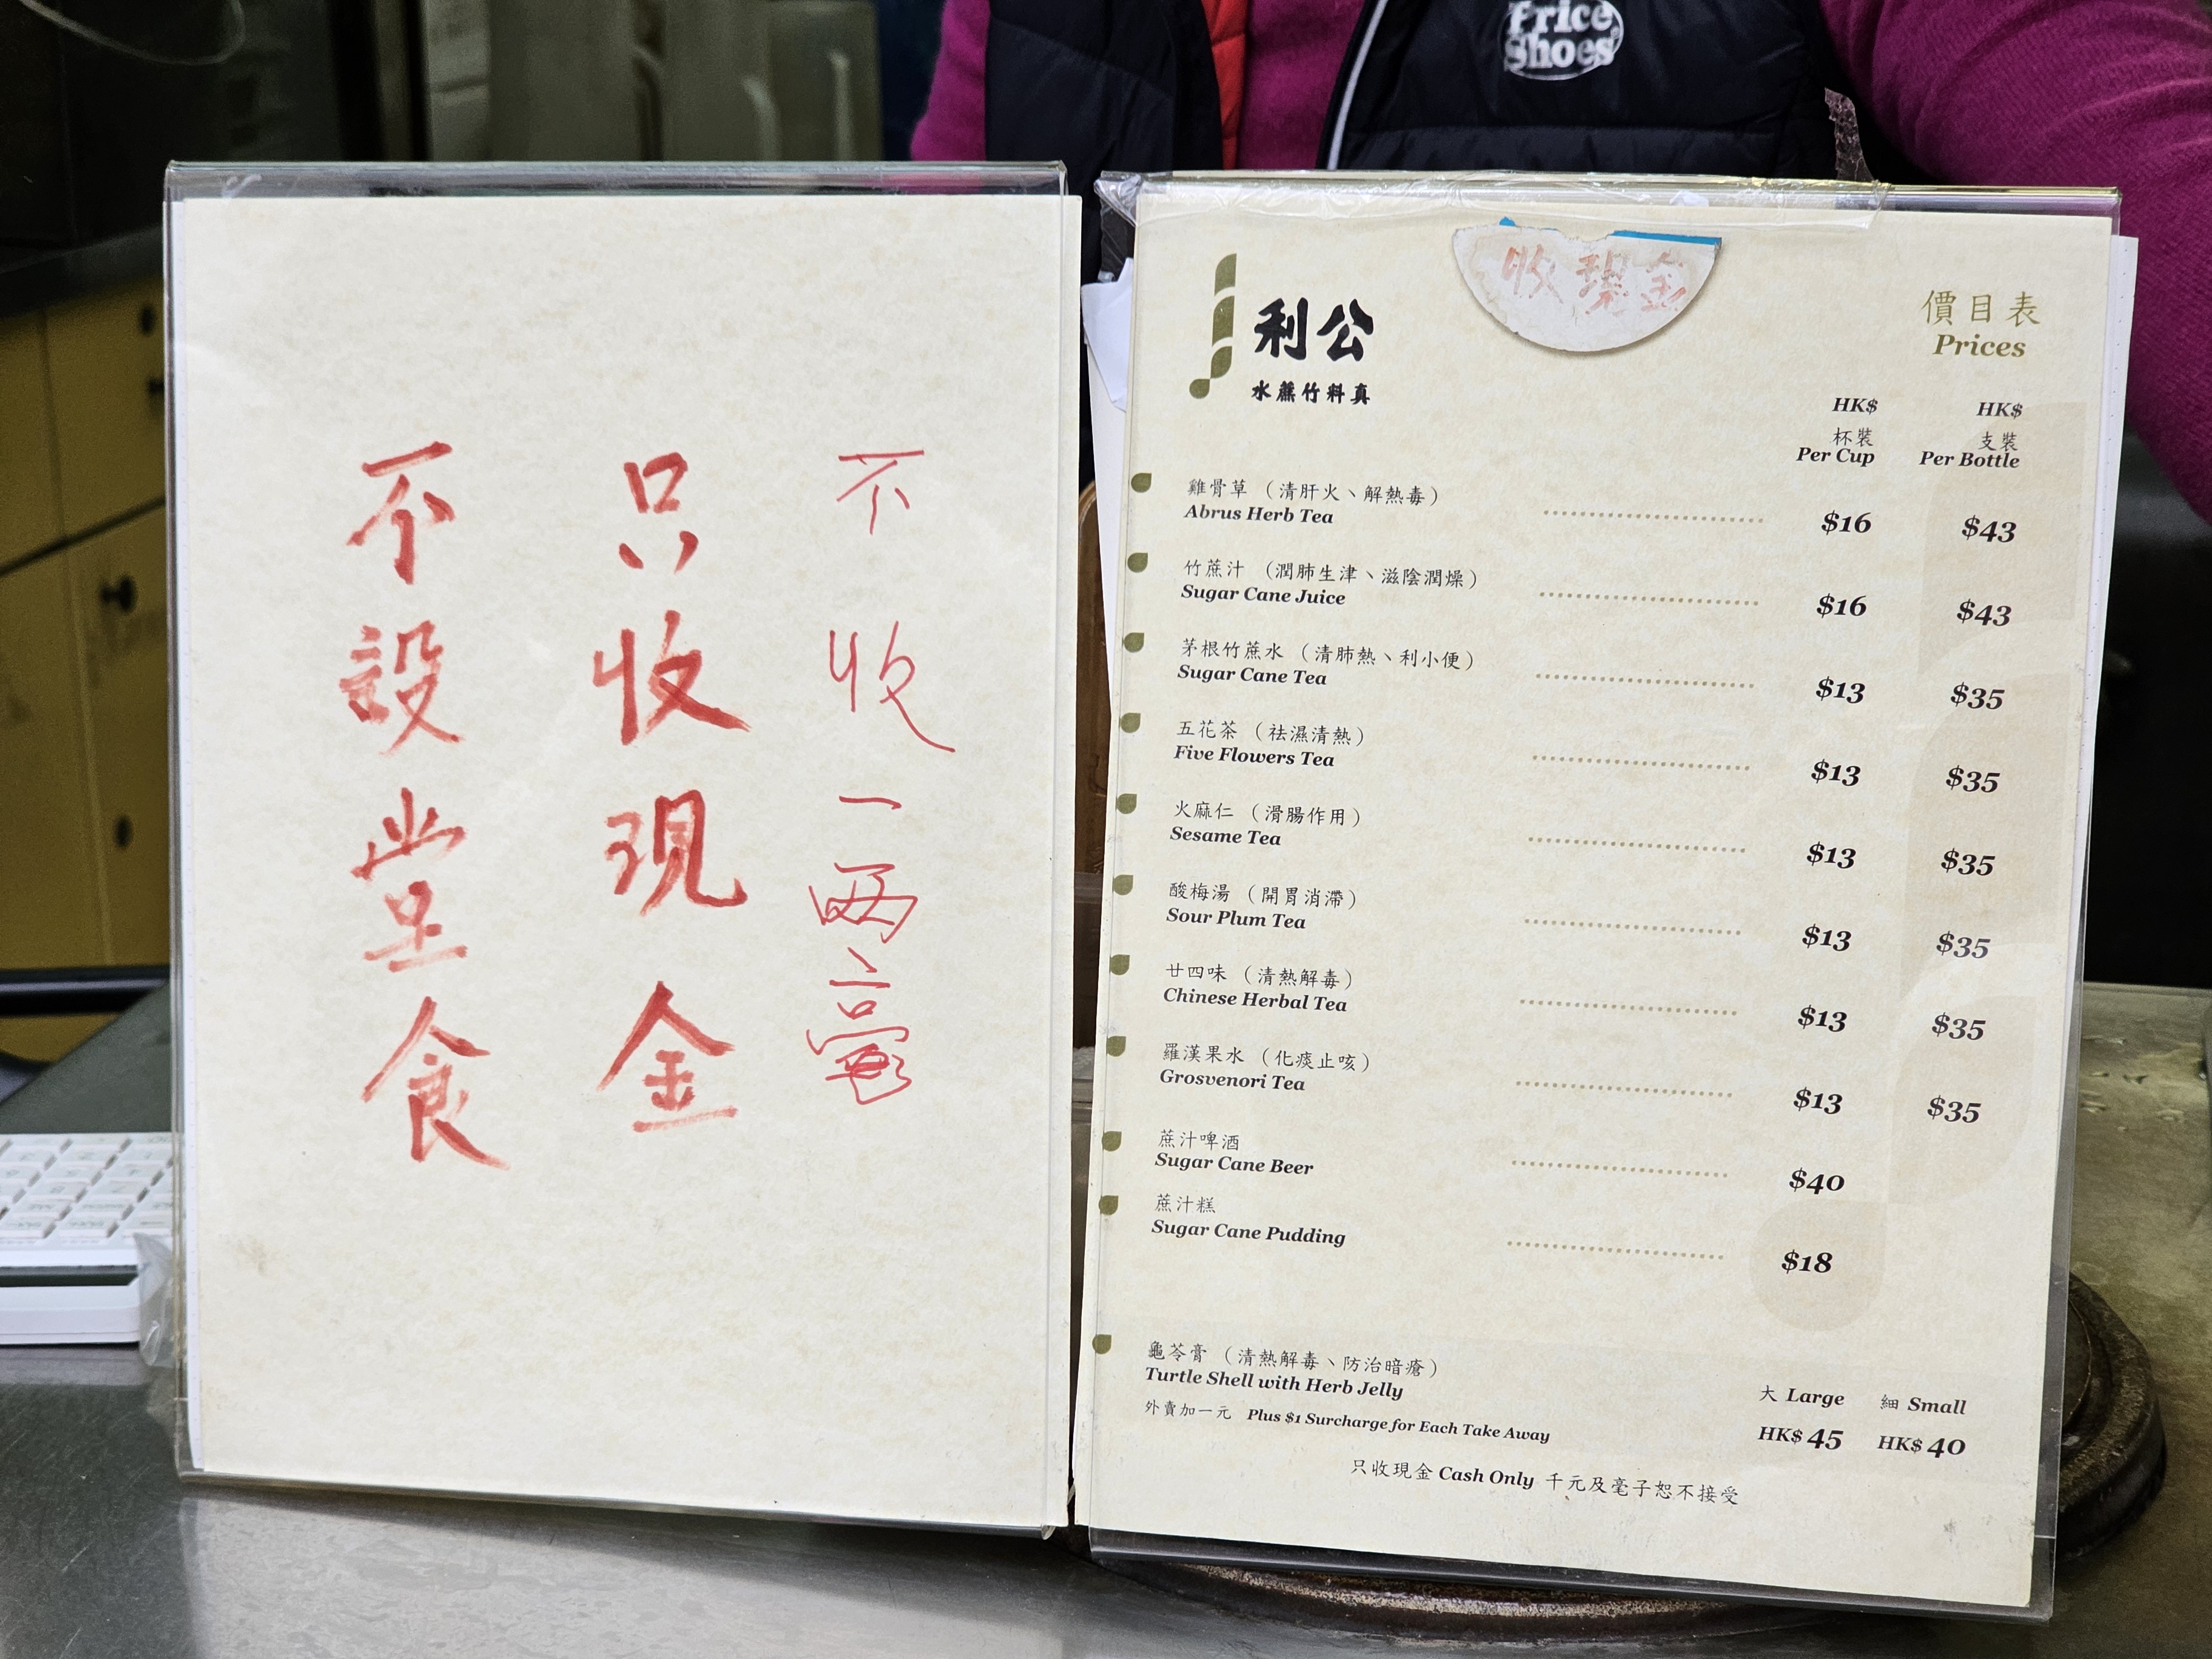 Price
Shoes
不收一兩毫
只收現金
不設堂食
收現金
公利
真料竹蔗水
價目表
Prices
HK$ HK$
杯裝 支裝
Per Cup Per Bottle
雞骨草 （清肝火、解熱毒）
Abrus Herb Tea $16 $43
竹蔗汁 （潤肺生津、滋陰潤燥）
Sugar Cane Juice $16 $43
茅根竹蔗水 （清肺熱、利小便）
Sugar Cane Tea $13 $35
五花茶 （祛濕清熱）
Five Flowers Tea $13 $35
火麻仁 （滑腸作用）
Sesame Tea $13 $35
酸梅湯 （開胃消滯）
Sour Plum Tea $13 $35
廿四味 （清熱解毒）
Chinese Herbal Tea $13 $35
羅漢果水 （化痰止咳）
Grosvenori Tea $13 $35
蔗汁啤酒
Sugar Cane Beer $40
蔗汁糕
Sugar Cane Pudding $18
龜苓膏 （清熱解毒、防治暗瘡）
Turtle Shell with Herb Jelly
大 Large 細 Small
外賣加一元 Plus $1 Surcharge for Each Take Away
HK$ 45 HK$ 40
只收現金 Cash Only 千元及毫子恕不接受